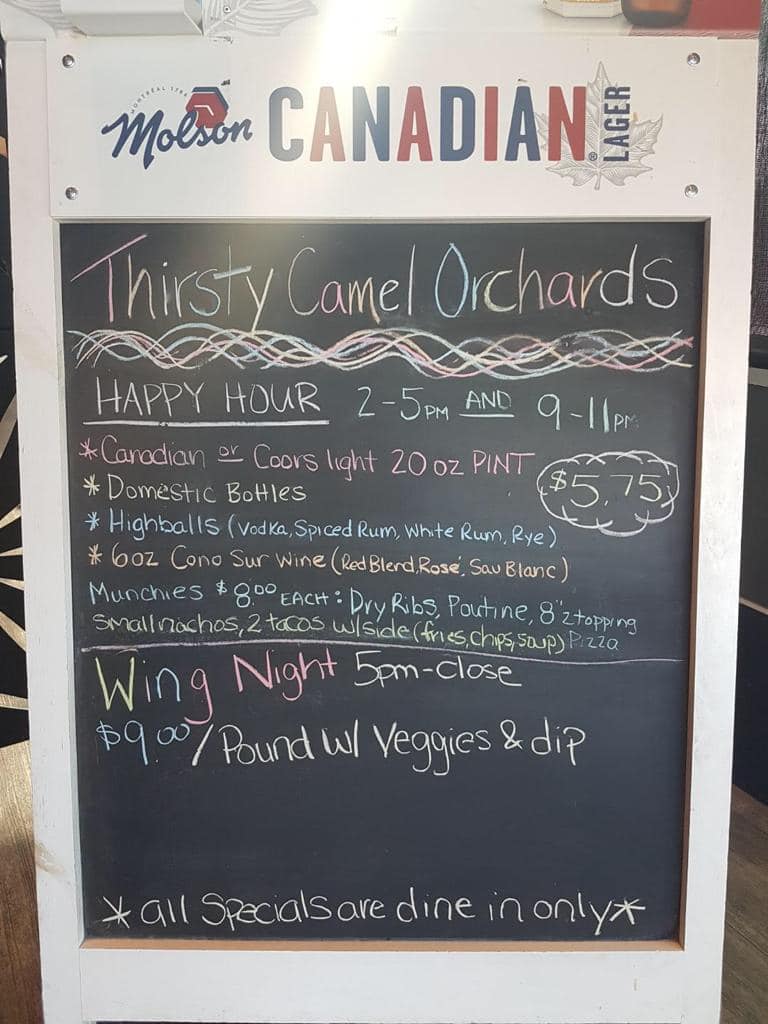 MONTRÉAL 1786
Molson CANADIAN LAGER
Thirsty Camel Orchards
HAPPY HOUR 2-5PM AND 9-11PM
*Canadian or Coors light 20 oz PINT
$5.75
* Domestic Bottles
* Highballs (Vodka, Spiced Rum, White Rum, Rye)
* 6oz Cono Sur Wine (Red Blend, Rosé, Sau Blanc)
Munchies $8.00 EACH: Dry Ribs, Poutine, 8" 2 topping
Small nachos, 2 tacos w/side (fries, chips, soup) Pizza
Wing Night 5pm-close
$9.00/Pound w/ Veggies & dip
*all Specials are dine in only*